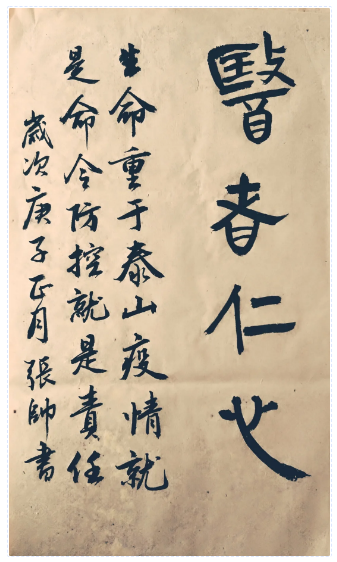 醫者仁心
生命重于泰山疫情就
是命令防控就是責任
歲次庚子正月張帥書